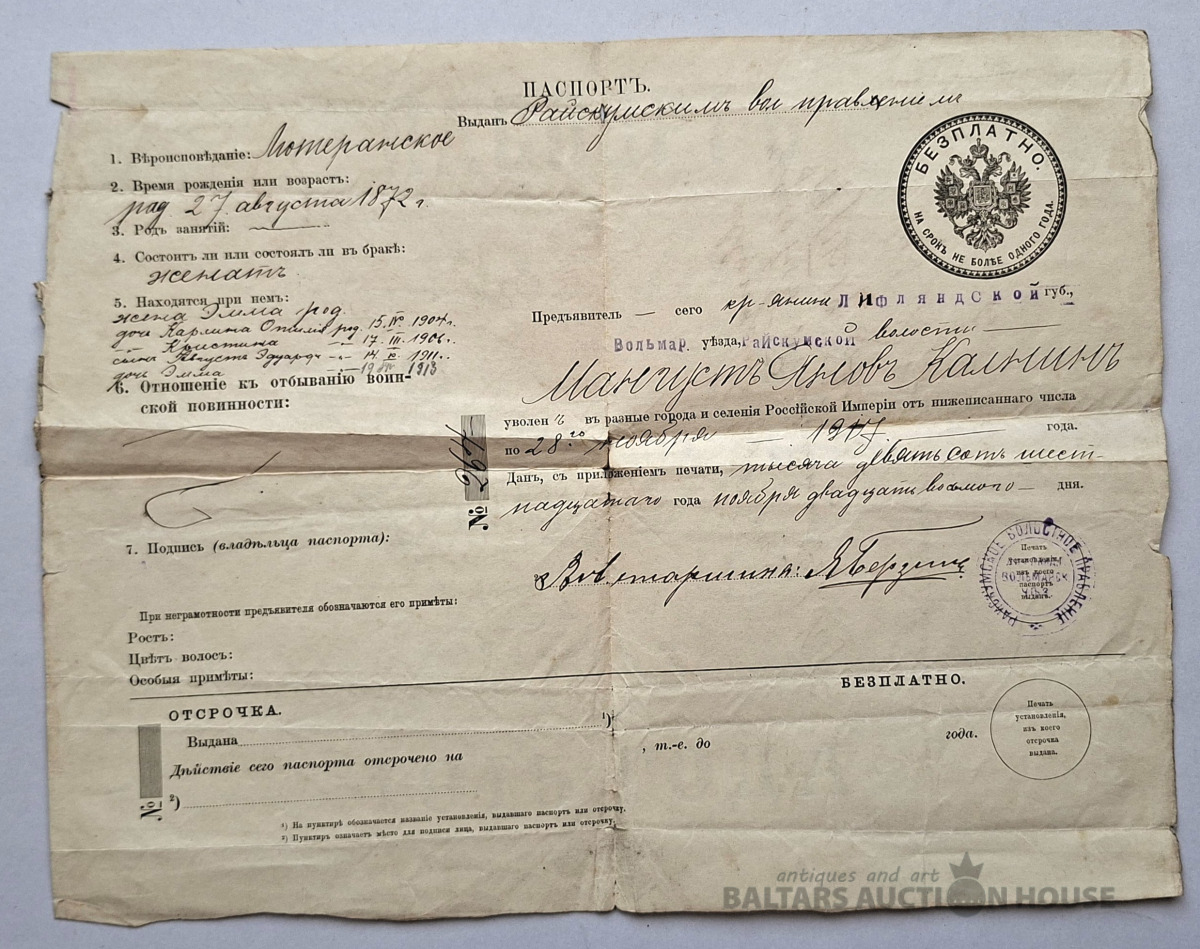 ПАСПОРТЪ.
Выданъ Райскумскимъ вол правленіемъ
БЕЗПЛАТНО.
НА СРОКЪ НЕ БОЛѢЕ ОДНОГО ГОДА.
1. Вѣроисповѣданіе: Лютеранское
2. Время рожденія или возрастъ:
род. 27. августа 1872 г.
3. Родъ занятій:
4. Состоитъ ли или состоялъ ли въ бракѣ:
женатъ
5. Находятся при немъ:
жена Эмма род.
доч Карлина Отилія род. 15. IV. 1904 г.
Кристина 17. III. 1906 г.
сынъ Августъ Эдуардъ 14. 1911 г.
дочь Эмма 1913
6. Отношеніе къ отбыванію воин-
ской повинности:
Предъявитель — сего кр-янинъ Лифляндской губ.,
Вольмар. уѣзда, Райскумской волости
Мангустъ Яновъ Калнинъ
уволенъ въ разные города и селенія Россійской Имперіи отъ нижеписаннаго числа
по 28го ноября — 1917. года.
Данъ, съ приложеніемъ печати, тысяча девятьсотъ шест-
надцатаго года ноября двадцать восьмого — дня.
№ 264
7. Подпись (владѣльца паспорта):
2) Вол старшина: Я Берзинь
РАЙСКУМСКОЕ ВОЛОСТНОЕ ПРАВЛЕНІЕ
ВОЛЬМАРСК
Печать
установленія,
изъ коего
паспортъ
выданъ.
При неграмотности предъявителя обозначаются его примѣты:
Ростъ:
Цвѣтъ волосъ:
Особыя примѣты:
БЕЗПЛАТНО.
ОТСРОЧКА.
Выдана 1)
Дѣйствіе сего паспорта отсрочено на , т.-е. до года.
Печать
установленія,
изъ коего
отсрочка
выдана.
№
2)
1) На пунктирѣ обозначается названіе установленія, выдавшаго паспортъ или отсрочку.
2) Пунктиръ означаетъ мѣсто для подписи лица, выдавшаго паспортъ или отсрочку.
antiques and art
BALTARS AUCTION HOUSE